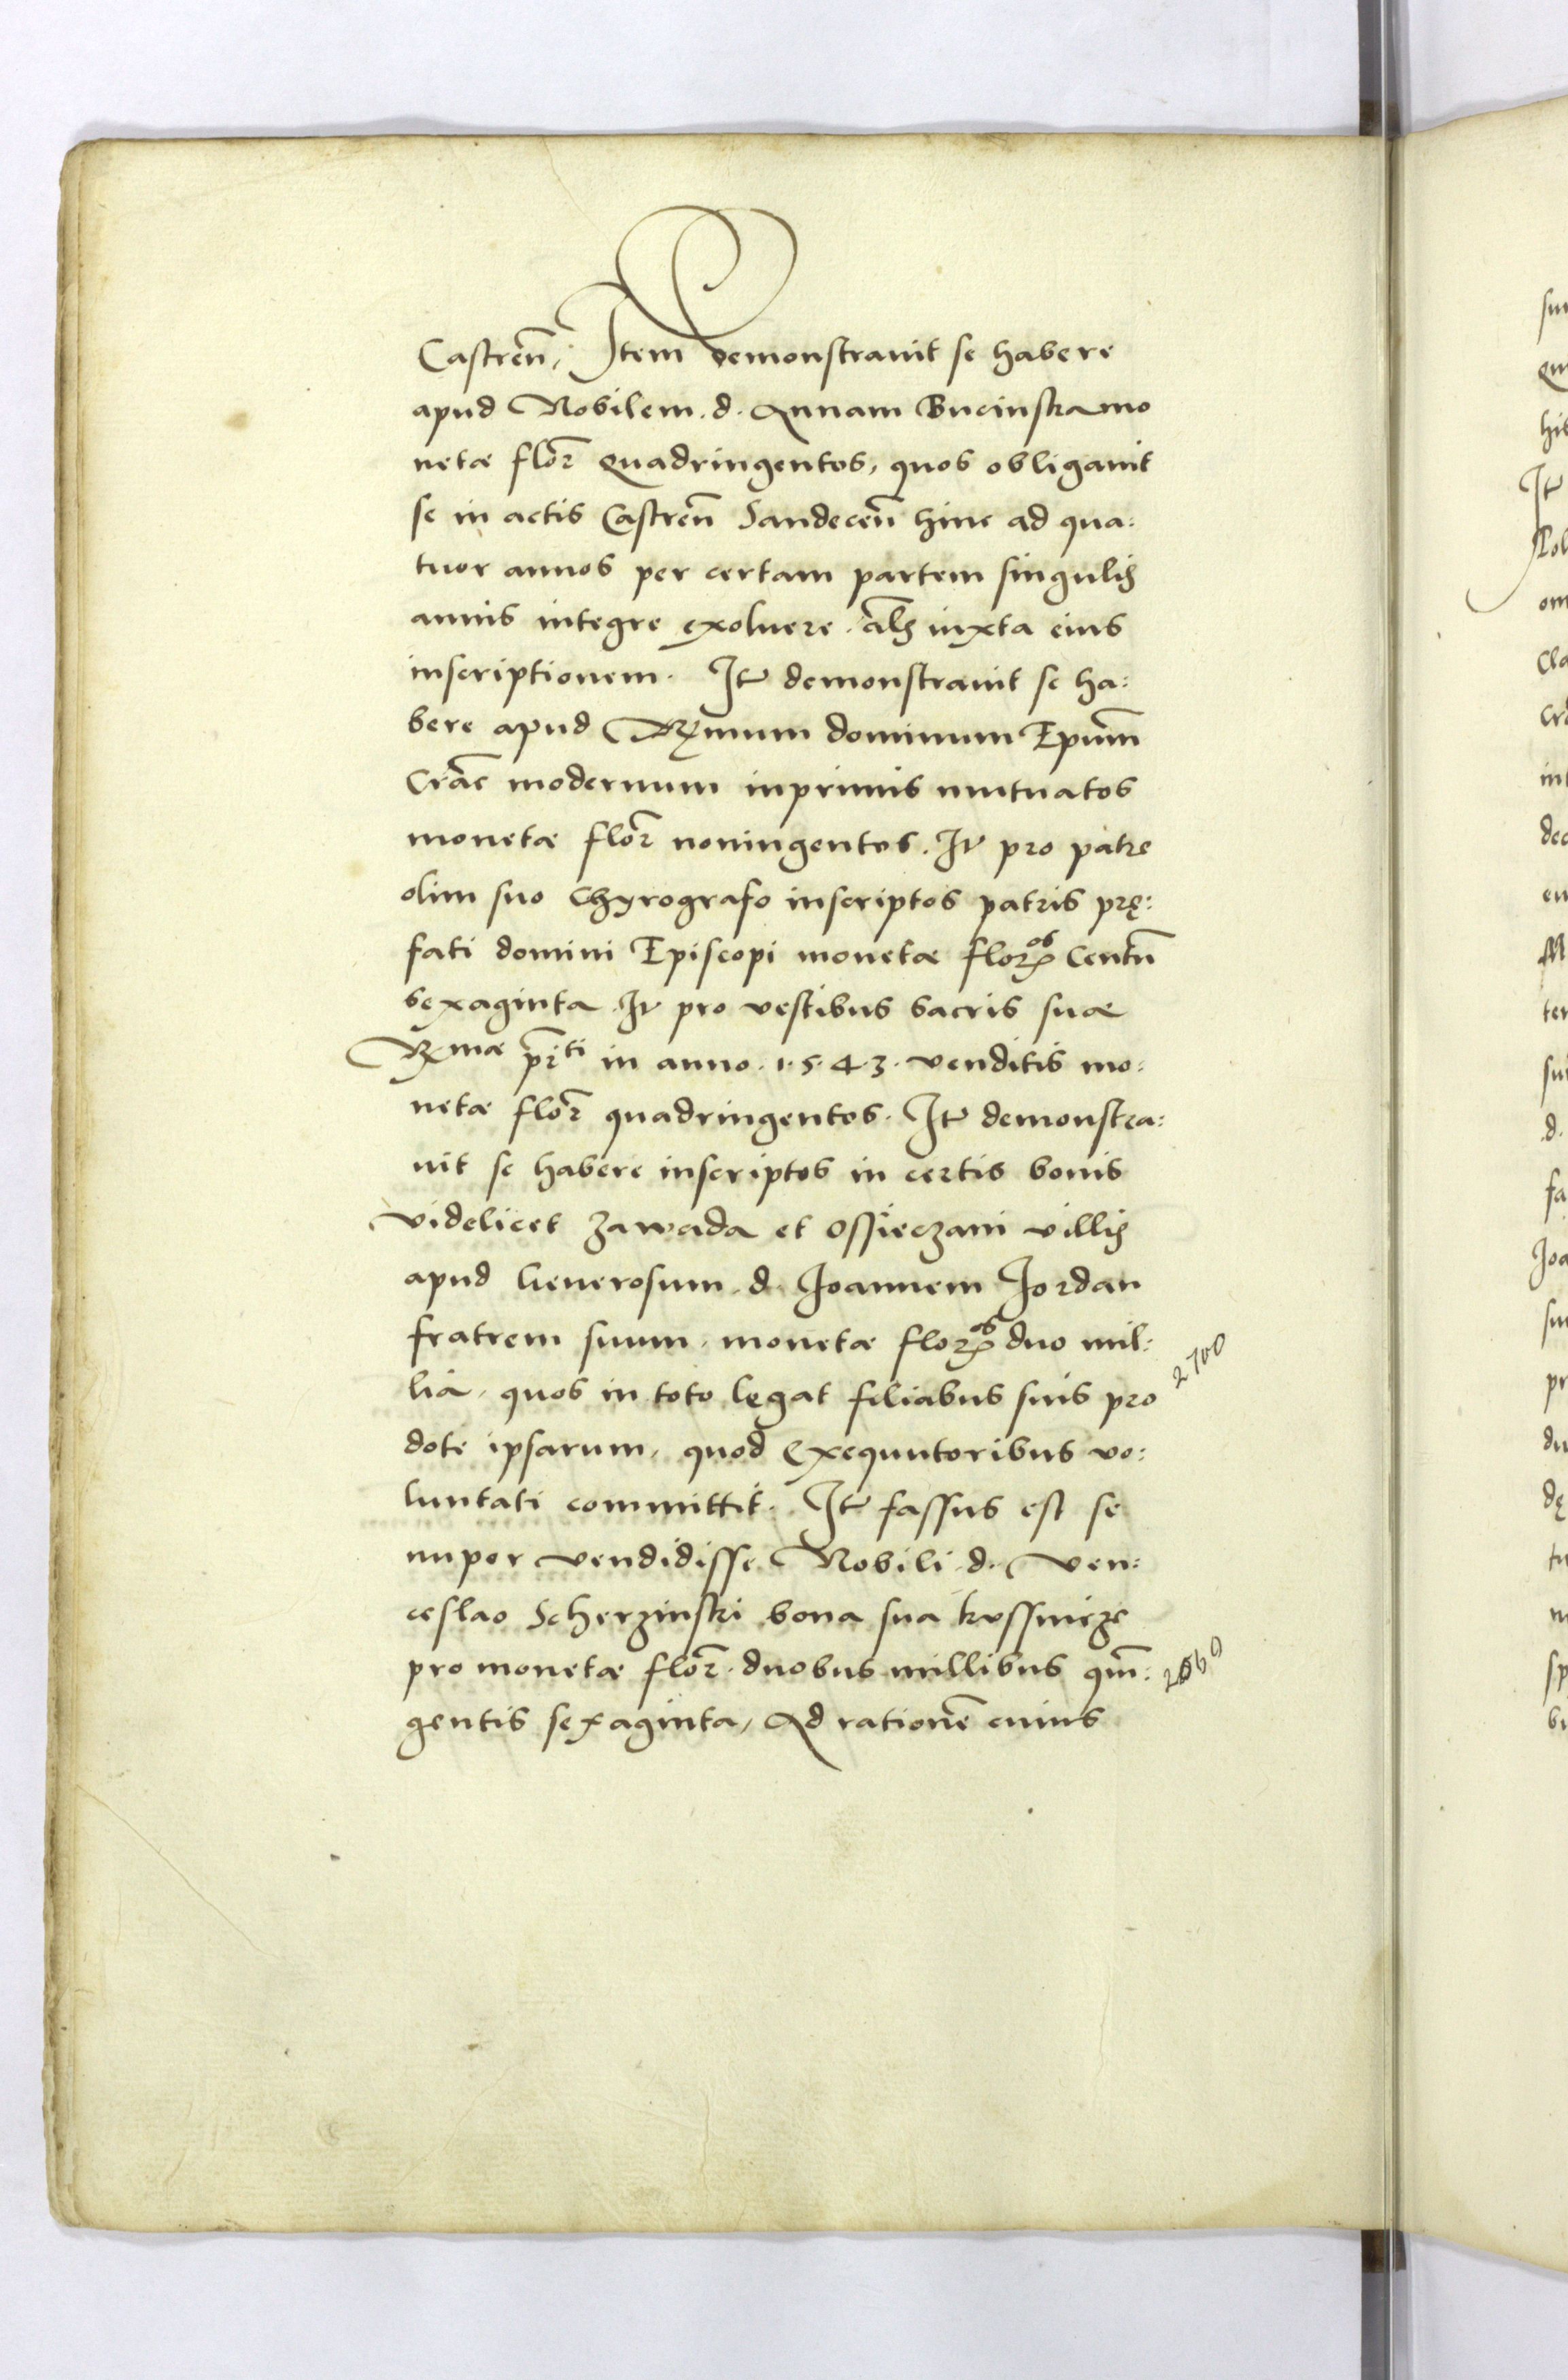 Castren̄, Item demonstrauit se habere
apud Nobilem. d. Annam Bucinska mo
netæ flor̄ quadringentos, quos obligauit
se in actis Castren̄ Sandecen̄ hinc ad qua:
tuor annos per certam partem singulis
annis integre exoluere. al̄s iuxta eius
inscriptionem. It̄ demonstrauit se ha:
bere apud Rẹmum dominum Epum̄
Crac̄ modernum inprimis mutuatos
monetæ flor̄ noningentos. It̄ pro patre
olim suo Chyrografo inscriptos patris prę:
fati domini Episcopi monetæ floꝝos Centū
sexaginta. It̄ pro vestibus sacris suæ
Rmæ pr̄ti in anno. 1.5.4.3. venditis mo:
netæ flor̄ quadringentos. It̄ demonstra:
uit se habere inscriptos in certis bonis
videlicet Zawada et Ossieczani villis
apud Generosum. d. Joannem Jordan
fratrem suum, monetæ floꝝos duo mil:
lia, quos in toto legat filiabus suis pro
2700
dote ipsarum, quod exequutoribus vo:
luntati committit. It̄ fassus est se
nuper vendidisse Nobili. d. Ven:
ceslao Scherzinski bona sua
pro monetæ flor̄. duobus millibus qin̄:
gentis sexaginta, Ad rationē cuius